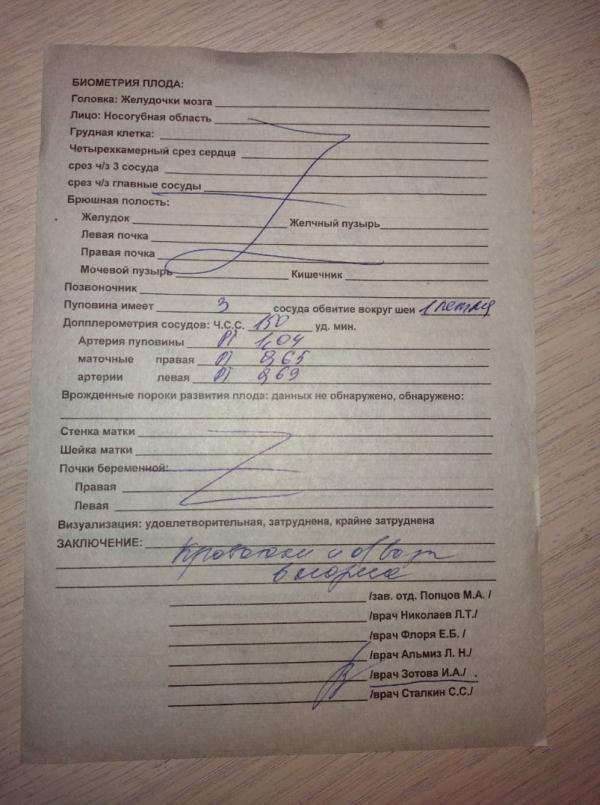 БИОМЕТРИЯ ПЛОДА:
Головка: Желудочки мозга
Лицо: Носогубная область
Грудная клетка:
Четырехкамерный срез сердца
срез ч/з 3 сосуда
срез ч/з главные сосуды
Брюшная полость:
Желудок Желчный пузырь
Левая почка
Правая почка
Мочевой пузырь Кишечник
Позвоночник
Пуповина имеет 3 сосуда обвитие вокруг шеи 1 петля
Допплерометрия сосудов: Ч.С.С. 150 уд. мин.
Артерия пуповины PI 1,04
маточные правая PI 0,65
артерии левая PI 0,69
Врожденные пороки развития плода: данных не обнаружено, обнаружено:
Стенка матки
Шейка матки
Почки беременной:
Правая
Левая
Визуализация: удовлетворительная, затруднена, крайне затруднена
ЗАКЛЮЧЕНИЕ:
Кровотоки
в норме
/зав. отд. Попцов М.А. /
/врач Николаев Л.Т./
/врач Флоря Е.Б. /
/врач Альмиз Л. Н./
/врач Зотова И.А./
/врач Сталкин С.С./